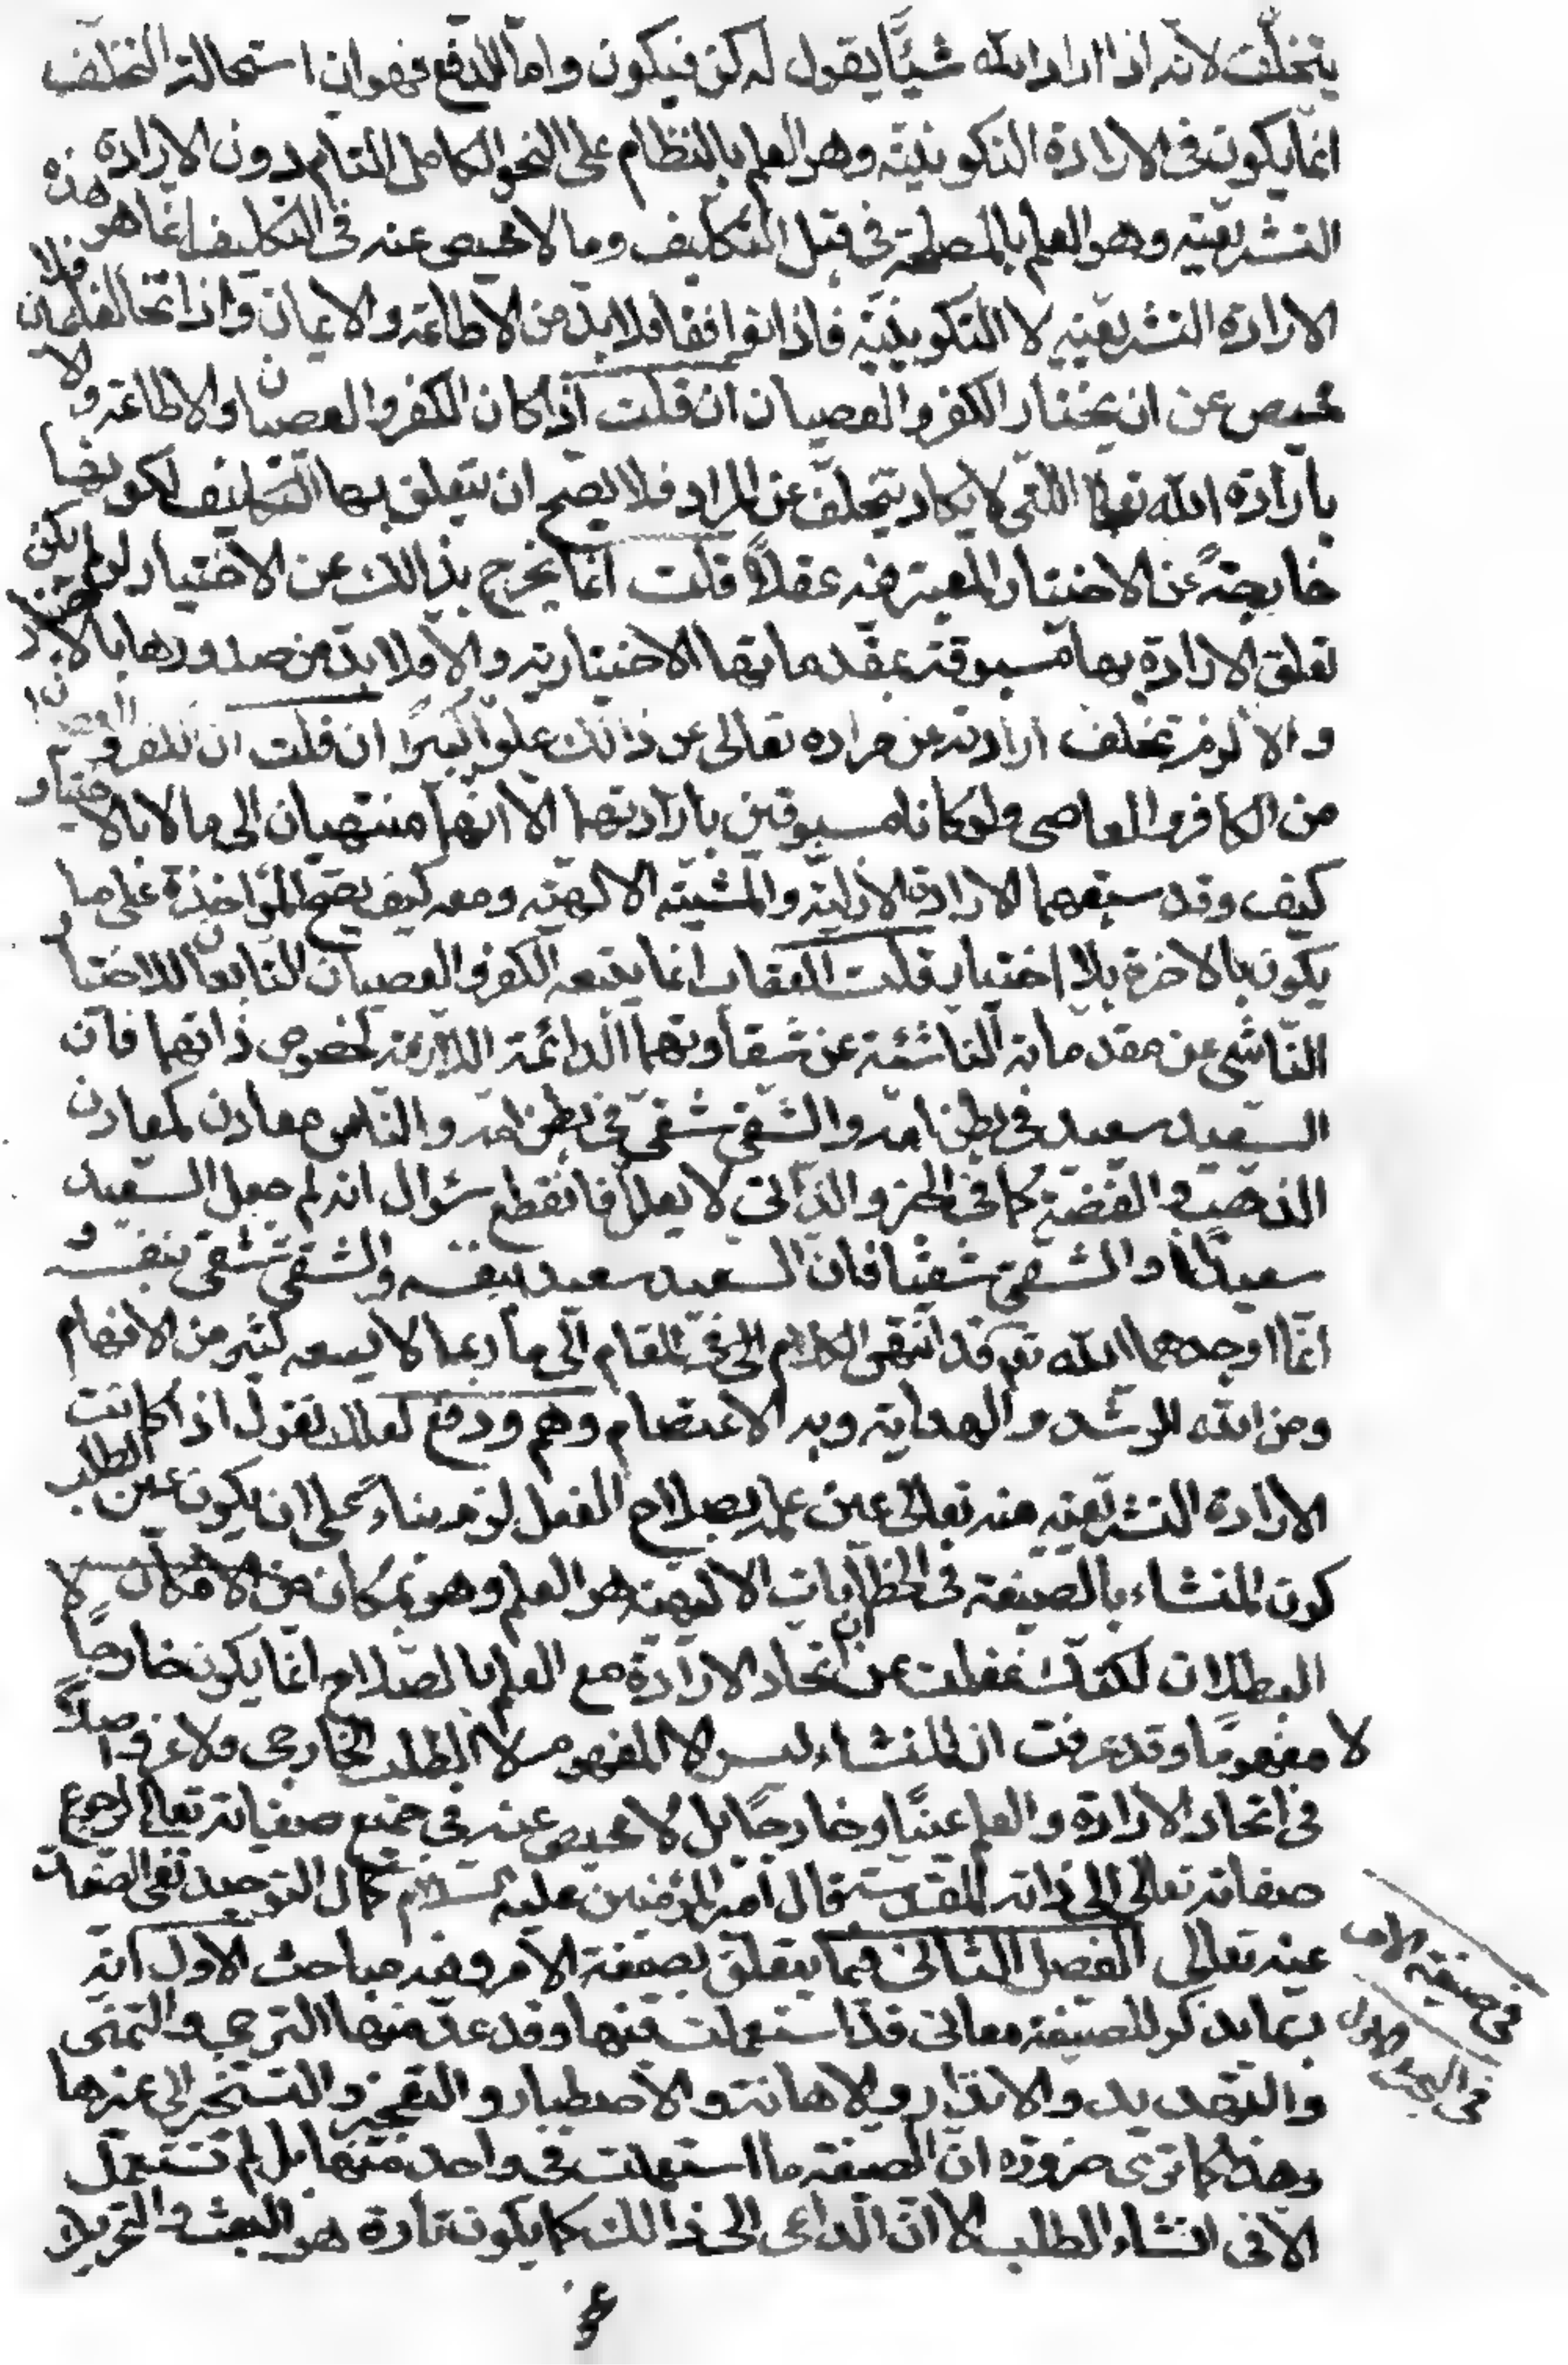 يتخلّف لانه اذا اراد الله شيئًا يقول له كن فيكون واما الدفع فهو ان استحالة التخلف
انما يكون فى الارادة التكوينيّة وهو العلم بالنظام على النحو الكامل التام دون الارادة
التشريعيّه وهو العلم بالمصلحة فى فعل المكلف وما لا محيص عنه فى التكليف انما هو هذه
الارادة التشريعيّه لا التكوينيّة فاذا توافقتا فلا بد من الاطاعة والايمان واذا تخالفتا فلا
محيص عن ان يختار الكفر والعصيان ان قلت اذا كان الكفر والعصيان والاطاعة والايمان
بارادة الله تعالى اللتى لا يكاد يتخلّف عن المراد فلا يصح ان يتعلق بها التكليف لكونها
خارجة عن الاختيار المعتبر فيه عقلاً قلت انما يخرج بذالك عن الاختيار لو لم يكن
تعلق الارادة بها مسبوقة بمقدماتها الاختيارية والا فلا بد من صدورها بالاختيار
والا لزم تخلف ارادته عن مراده تعالى عن ذالك علوا كبيرًا ان قلت ان الكفر والعصيان
من الكافر والعاصى ولو كانا مسبوقين بارادتهما الا انهما منتهيان الى ما لا بالاختيار
كيف وقد سبقهما الارادة الازليّة والمشيّة الالهيّة ومعه كيف يصحّ المؤاخذة على ما
يكون بالاخرة بلا اختيار قلت العقاب انما يتبعه الكفر والعصيان التابعان للاختيار
الناشى عن مقدماته الناشئة عن شقاوتهما الذاتية اللازمة لخصوص ذاتهما فان
السعيد سعيد فى بطن امه والشقى شقىّ فى بطن امه والناس معادن كمعادن
الذهب والفضة كما فى الخبر والذاتى لا يعلل فانقطع سئوال انه لم جعل السعيد
سعيدًا والشقىّ شقيًا فان السعيد سعيد بنفسه والشقى شقى بنفسه و
انما اوجدهما الله تع قد انتهى الكلام الى فى المقام الى ما ربما لا يسعه كثير من الافهام
ومن الله الرشد والهداية وبه الاعتصام وهم ودفع لعلك تقول اذا كانت
الارادة التشريعيّه منه تعالى عين علمه بصلاح الفعل لزم بناءً على ان يكون عين الطلب
كون المنشاء بالصيغة فى الخطابات الالهية هو العلم وهو بمكان من
البطلان لكنك غفلت عن ان اتحاد الارادة مع العلم بالصلاح انما يكون خارجًا
لا مفهومًا وقد عرفت ان المنشاء ليس الا المفهوم لا الطلب الخارجى ولا غرو اصلاً
فى اتحاد الارادة والعلم عينًا وخارجًا بل لا محيص عنه فى جميع صفاته تعالى لرجوع
صفاته تعالى الى ذاته المقدسة قال امير المؤمنين عليه السلام كمال التوحيد نفى الصفات
عنه تعالى الفصل الثانى فيما يتعلق بصيغة الامر وفيه مباحث الاول انه
ربما يذكر للصيغة معانى قد استعملت فيها وقد عد منها الترجى والتمنى
والتهديد والانذار والاهانة والاحتقار والتعجيز والتسخير الى غيرها
وهذا كما ترى ضرورة ان الصيغة ما استعملت فى واحد منها بل لم تستعمل
الا فى انشاء الطلب الا ان الداعى الى ذالك كما يكون تارة هو البعث والتحريك
فى صيغة الامر
فى البحث الاول